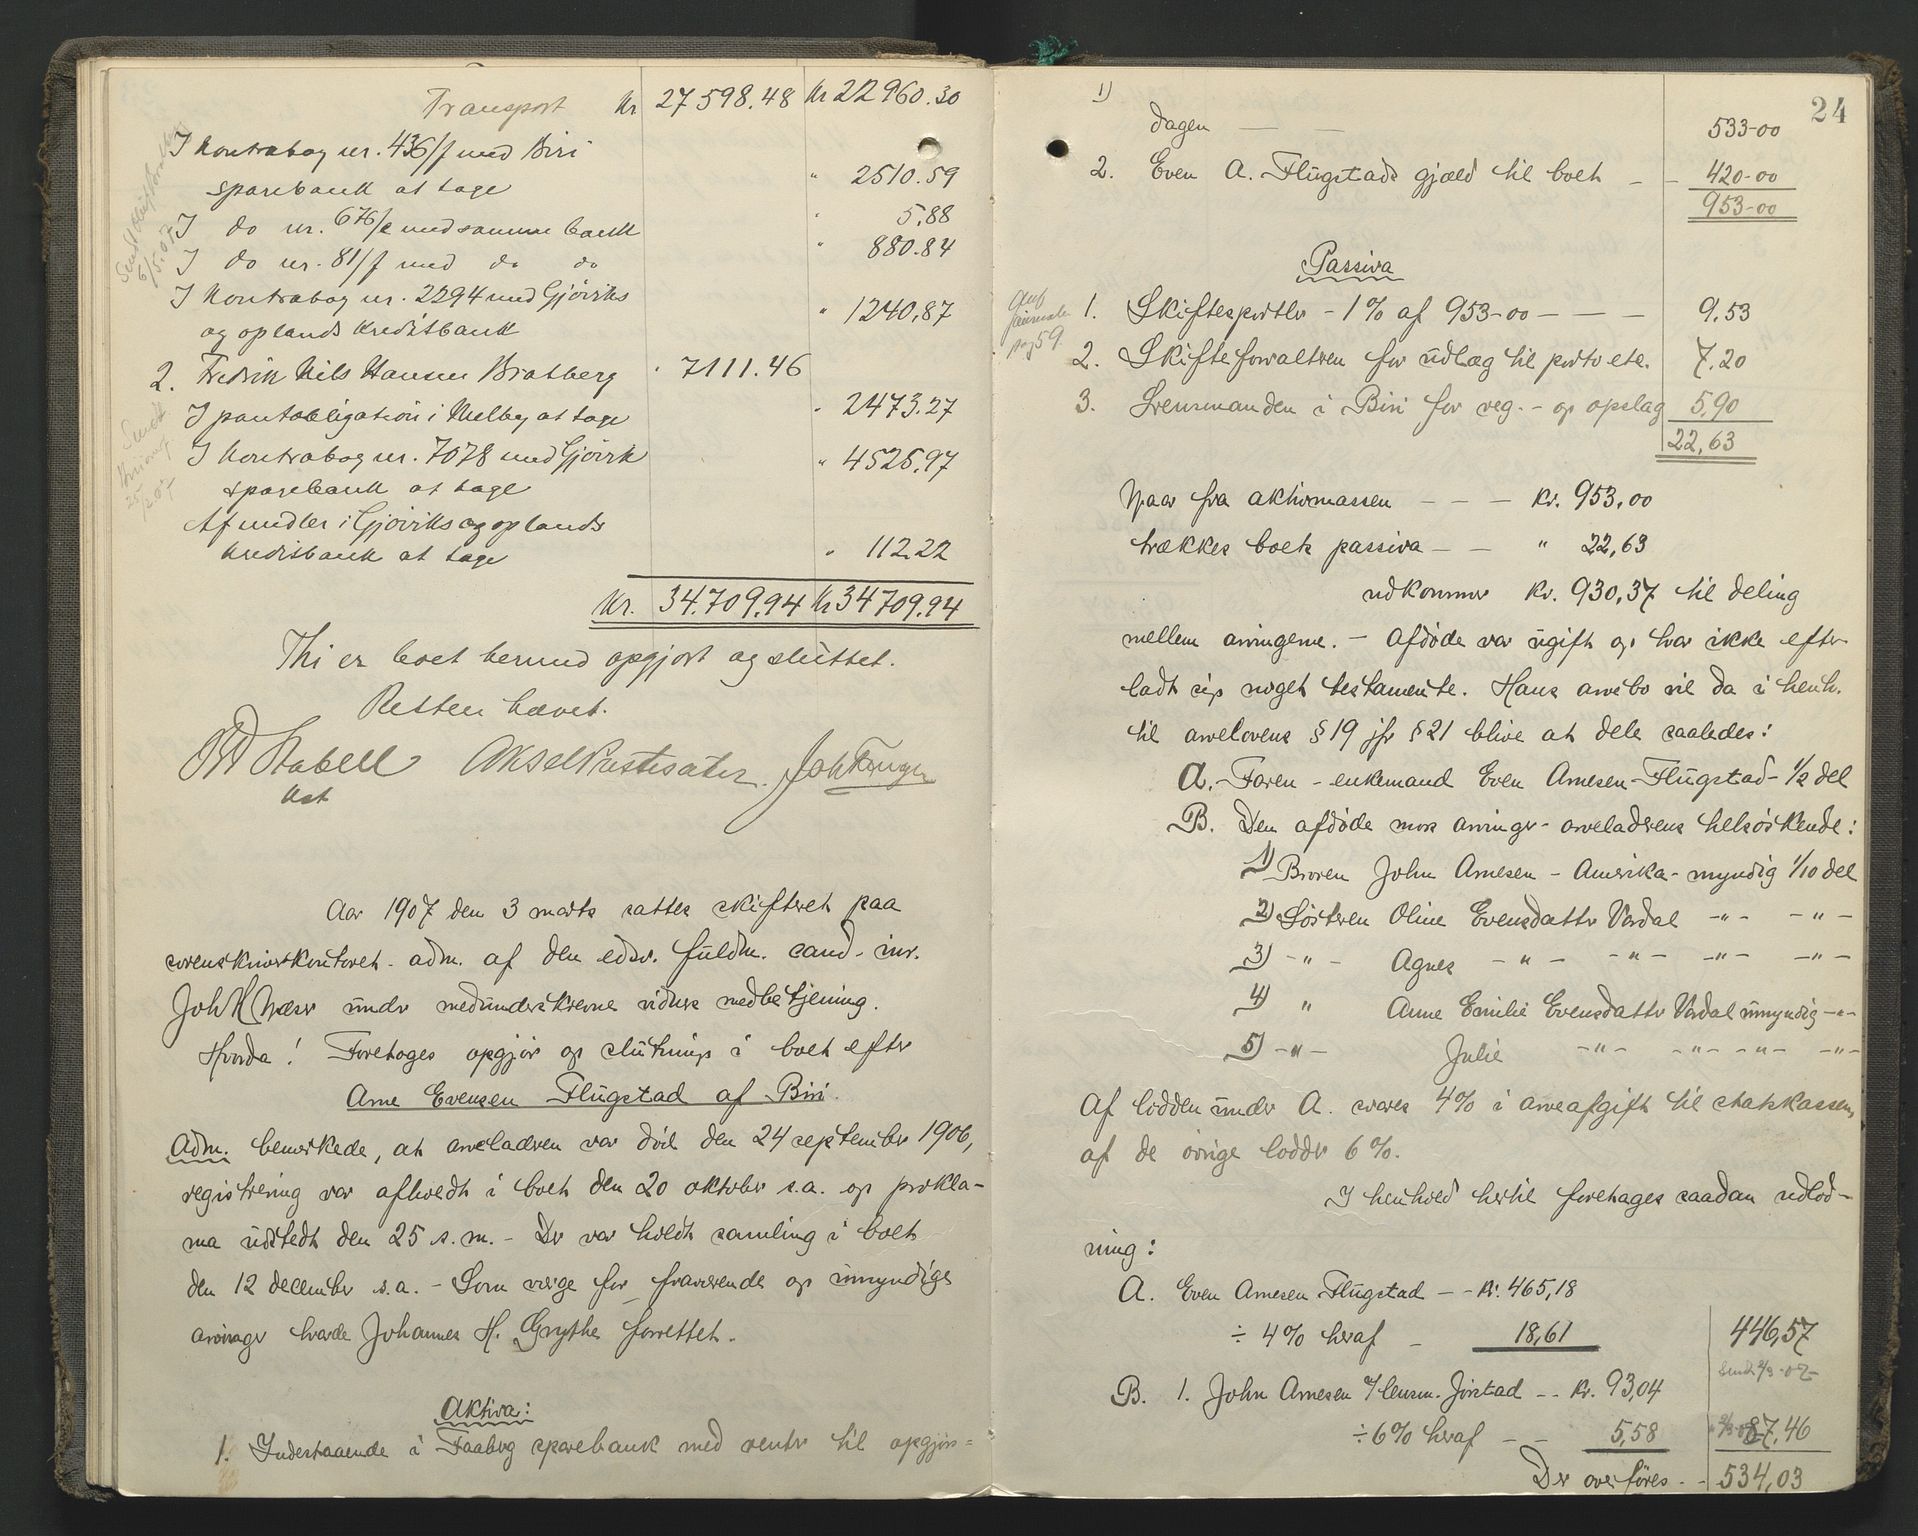 Transport Kr 27598.48 Kr 22960.30
I kontrabog nr. 436/f med Biri
sparebank at tage " 2510.59
I do nr. 676/e med samme bank " 5.88
I do nr. 81/f med do do " 880.84
I kontrabog nr. 2294 med Gjøviks
og oplands kreditbank " 1240,87
2. Fredrik Nils Hansen Bratberg " 7111.46
I pantobligation i Melby at tage " 2473.27
I kontrabog nr. 7078 med Gjøvik
sparebank at tage " 4525,97
Af midler i Gjøviks og oplands
kreditbank at tage " 112.22
Kr. 34.709.94 Kr 34709.94
Thi er boet hermed opgjort og sluttet.
Retten hævet.
Stabell
Aar 1907 den 3 marts sattes skifteret paa
sorenskriverkontoret - adm. af den edsv. fuldm. cand. jur.
Joh K Næser under medunderskrevne vidners medbetjening.
Hvorda! Foretoges opgjør og slutning i boet efter
Arne Evensen Flugstad af Biri.
Adm. bemerkede, at arveladeren var død den 24 september 1906,
registrering var afholdt i boet den 20 oktober s.a. og prokla-
ma udstedt den 25 s.m. - Der var holdt samling i boet
den 12 december s.a. - Som verge for fraværende og umyndige
arvinger havde Johannes H. Grythe forrettet.
Aktiva:
1. Indestaaende i Faaberg sparebank med renter til opgjørs=
24
1)
dagen — — 533-00
2. Even A. Flugstads gjæld til boet - - 420-00
953-00
Passiva
pag 59
1. Skifteportler - 1% af 953-00 - - - 9.53
2. Skifteforvalteren for udlæg til porto etc. 7.20
3. Lensmanden i Biri for reg.- og opslag 5,90
22,63
Naar fra aktivmassen - - - Kr. 953,00
trækkes boets passiva - - " 22,63
udkommer Kr. 930,37 til deling
mellem arvingerne. - Afdøde var ugift og har ikke efter-
ladt sig noget testamente. Hans arvebo vil da i henh.
til arvelovens § 19 jfr § 21 blive at dele saaledes:
A. Faren - enkemand Even Arnesen Flugstad - 1/2 del
B. Den afdøde mors arvinger - arveladerens helsøskende:
1) Broren John Arnesen - Amerika - myndig 1/10 del
2) Søsteren Oline Evensdatter Vardal -"- -"-
3) -"- Agnes -"- -"- -"- -"-
4) " Anne Emilie Evensdatter Vardal umyndig -"-
5) -"- Julie -"- -"- -"- -"-
Af lodden under A. svares 4% i arveafgift til statskassen,
af de øvrige lodder 6%.
I henhold hertil foretages saadan udlod-
ning:
A. Even Arnesen Flugstad - - Kr. 465,18
÷ 4% heraf - 18,61 446,57
B. 1. John Arnesen v/ lensm. Jørstad - - Kr. 93,04
÷ 6% heraf - - 5,58 87,46
Der overføres - - 534,03